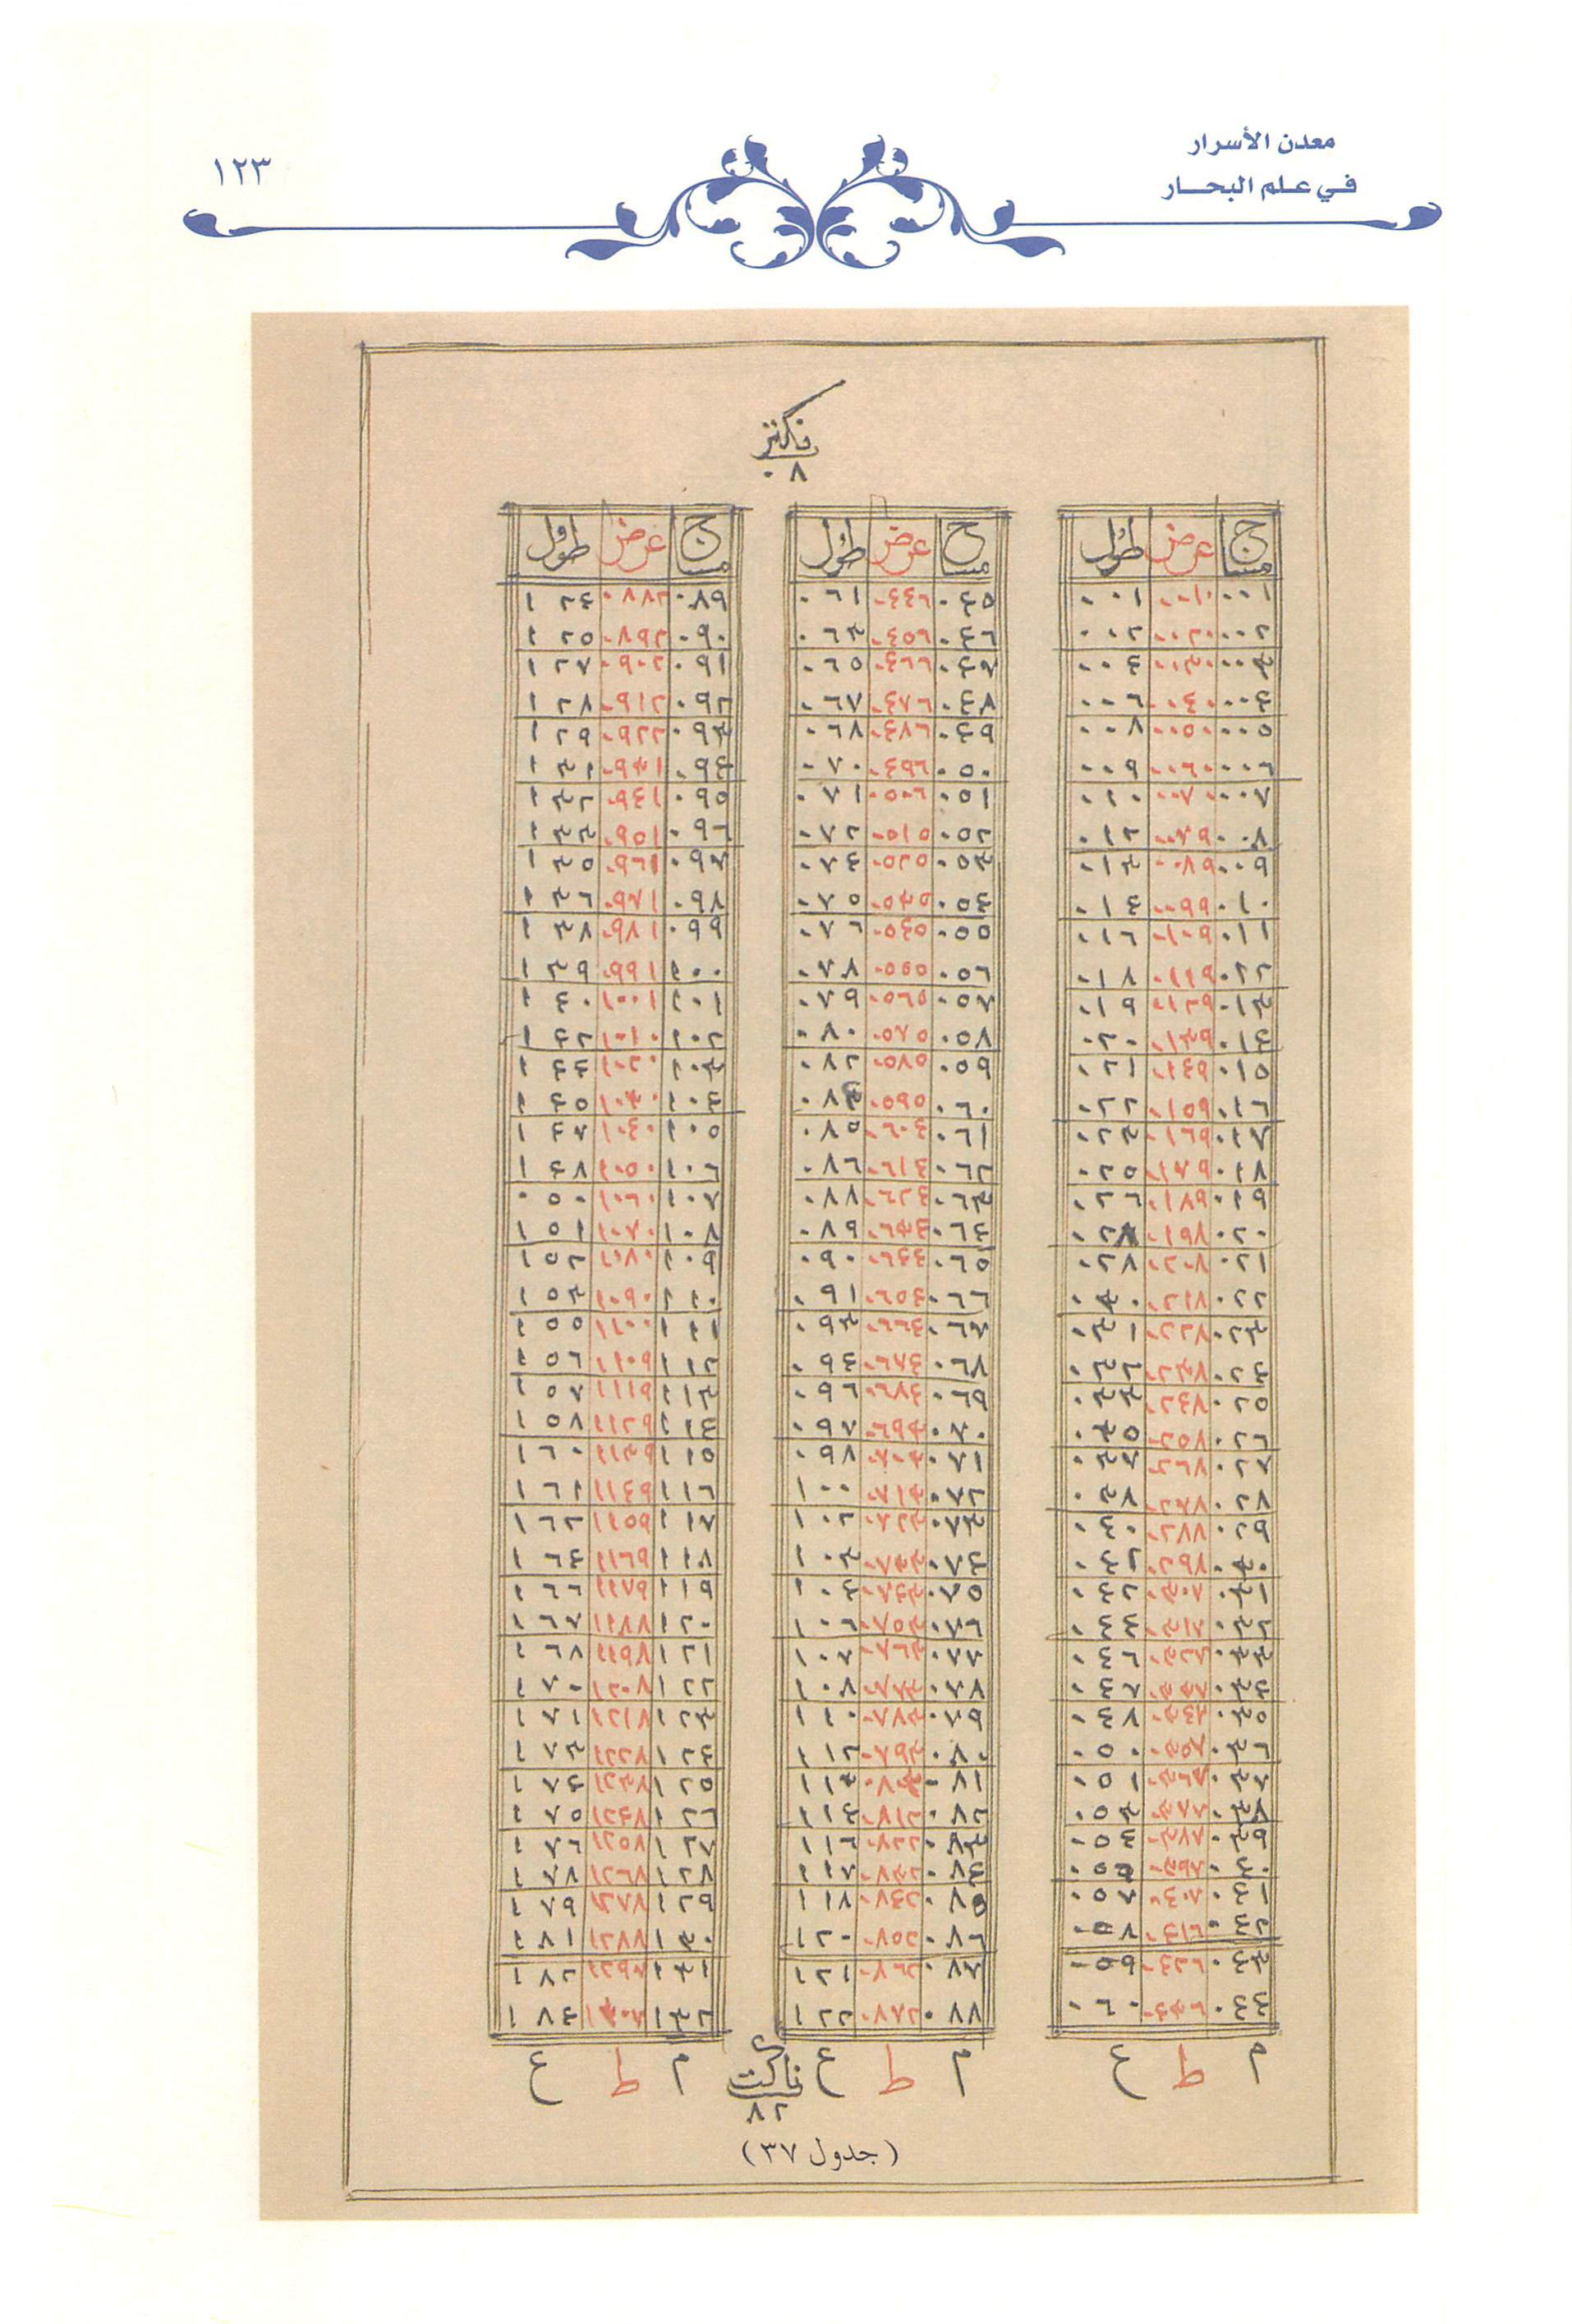 معدن الأسرار
في علم البحار
١٢٣
ناكتيز
٠٨
مساح عرض طول
٠٠١ ٠٠١٠ ٠٠١
٠٠٢ ٠٠٢٠ ٠٠٢
٠٠٣ ٠٠٣٠ ٠٠٤
٠٠٤ ٠٠٤٠ ٠٠٦
٠٠٥ ٠٠٥٠ ٠٠٨
٠٠٦ ٠٠٦٠ ٠٠٩
٠٠٧ ٠٠٧٠ ٠١٠
٠٠٨ ٠٠٧٩ ٠١٢
٠٠٩ ٠٠٨٩ ٠١٣
٠١٠ ٠٠٩٩ ٠١٤
٠١١ ٠١٠٩ ٠١٦
٠١٢ ٠١١٩ ٠١٨
٠١٣ ٠١٢٩ ٠١٩
٠١٤ ٠١٣٩ ٠٢٠
٠١٥ ٠١٤٩ ٠٢١
٠١٦ ٠١٥٩ ٠٢٢
٠١٧ ٠١٦٩ ٠٢٣
٠١٨ ٠١٧٩ ٠٢٥
٠١٩ ٠١٨٩ ٠٢٦
٠٢٠ ٠١٩٨
٠٢١ ٠٢٠٨ ٠٢٨
٠٢٢ ٠٢١٨ ٠٣٠
٠٢٣ ٠٢٢٨ ٠٣١
٠٢٤ ٠٢٣٨ ٠٣٢
٠٢٥ ٠٢٤٨ ٠٣٣
٠٢٦ ٠٢٥٨ ٠٣٥
٠٢٧ ٠٢٦٨ ٠٣٧
٠٢٨ ٠٢٧٨ ٠٣٨
٠٢٩ ٠٢٨٨ ٠٤٠
٠٣٠ ٠٢٩٨
٠٣١ ٠٣٠٨ ٠٤٢
٠٣٢ ٠٣١٨ ٠٤٤
٠٣٣ ٠٣٢٨ ٠٤٦
٠٣٤ ٠٣٣٨ ٠٤٧
٠٣٥ ٠٣٤٨ ٠٤٨
٠٣٦ ٠٣٥٨ ٠٥٠
٠٣٧ ٠٣٦٨ ٠٥١
٠٣٨ ٠٣٧٨ ٠٥٣
٠٣٩ ٠٣٨٧ ٠٥٤
٠٤٠ ٠٥٥
٠٤١ ٠٥٧
٠٤٢ ٠٤١٦ ٠٥٨
٠٤٣ ٠٤٢٦ ٠٥٩
٠٤٤ ٠٤٣٦ ٠٦٠
م ط ع
مساح عرض طول
٠٤٥ ٠٤٤٦ ٠٦١
٠٤٦ ٠٤٥٦ ٠٦٣
٠٤٧ ٠٤٦٦ ٠٦٥
٠٤٨ ٠٤٧٦ ٠٦٧
٠٤٩ ٠٤٨٦ ٠٦٨
٠٥٠ ٠٤٩٦ ٠٧٠
٠٥١ ٠٥٠٥ ٠٧١
٠٥٢ ٠٥١٥ ٠٧٢
٠٥٣ ٠٥٢٥ ٠٧٤
٠٥٤ ٠٥٣٥ ٠٧٥
٠٥٥ ٠٥٤٥ ٠٧٦
٠٥٦ ٠٥٥٥ ٠٧٨
٠٥٧ ٠٥٦٥ ٠٧٩
٠٥٨ ٠٥٧٥ ٠٨٠
٠٥٩ ٠٥٨٥ ٠٨٢
٠٦٠ ٠٥٩٥
٠٦١ ٠٦٠٤ ٠٨٥
٠٦٢ ٠٦١٤ ٠٨٦
٠٦٣ ٠٦٢٤ ٠٨٧
٠٦٤ ٠٦٣٤ ٠٨٩
٠٦٥ ٠٦٤٤ ٠٩٠
٠٦٦ ٠٦٥٤ ٠٩١
٠٦٧ ٠٦٦٤ ٠٩٣
٠٦٨ ٠٦٧٤ ٠٩٤
٠٦٩ ٠٦٨٤ ٠٩٦
٠٧٠ ٠٦٩٣ ٠٩٧
٠٧١ ٠٧٠٣ ٠٩٨
٠٧٢ ٠٧١٣ ١٠٠
٠٧٣ ٠٧٢٣ ١٠٢
٠٧٤ ٠٧٣٣ ١٠٣
٠٧٥ ٠٧٤٣ ١٠٤
٠٧٦ ٠٧٥٣ ١٠٦
٠٧٧ ٠٧٦٣ ١٠٧
٠٧٨ ٠٧٧٣ ١٠٨
٠٧٩ ٠٧٨٣ ١١٠
٠٨٠ ٠٧٩٣ ١١٢
٠٨١ ١١٣
٠٨٢ ٠٨١٢ ١١٤
٠٨٣ ٠٨٢٢ ١١٦
٠٨٤ ٠٨٣٢ ١١٧
٠٨٥ ٠٨٤٢ ١١٨
٠٨٦ ٠٨٥٢ ١٢٠
٠٨٧ ٠٨٦٢ ١٢١
٠٨٨ ٠٨٧٢ ١٢٢
م ط ع
مساح عرض طول
٠٨٩ ٠٨٨٢ ١٢٤
٠٩٠ ٠٨٩٢ ١٢٥
٠٩١ ٠٩٠٢ ١٢٧
٠٩٢ ٠٩١٢ ١٢٨
٠٩٣ ٠٩٢٢ ١٢٩
٠٩٤ ٠٩٣١ ١٣١
٠٩٥ ٠٩٤١ ١٣٢
٠٩٦ ٠٩٥١ ١٣٣
٠٩٧ ٠٩٦١ ١٣٥
٠٩٨ ٠٩٧١ ١٣٦
٠٩٩ ٠٩٨١ ١٣٨
١٠٠ ٠٩٩١ ١٣٩
١٠١ ١٠٠١ ١٤٠
١٠٢ ١٠١٠ ١٤٢
١٠٣ ١٠٢٠ ١٤٤
١٠٤ ١٠٣٠ ١٤٥
١٠٥ ١٠٤٠ ١٤٧
١٠٦ ١٠٥٠ ١٤٨
١٠٧ ١٠٦٠ ٠٥٠
١٠٨ ١٠٧٠ ١٥١
١٠٩ ١٠٨٠ ١٥٢
١١٠ ١٠٩٠ ١٥٣
١١١ ١١٠٠ ١٥٥
١١٢ ١١٠٩ ١٥٦
١١٣ ١١١٩ ١٥٧
١١٤ ١١٢٩ ١٥٨
١١٥ ١١٣٩ ١٦٠
١١٦ ١١٤٩ ١٦١
١١٧ ١١٥٩ ١٦٢
١١٨ ١١٦٩ ١٦٤
١١٩ ١١٧٩ ١٦٦
١٢٠ ١١٨٨ ١٦٧
١٢١ ١١٩٨ ١٦٨
١٢٢ ١٢٠٨ ١٧٠
١٢٣ ١٢١٨ ١٧١
١٢٤ ١٢٢٨ ١٧٣
١٢٥ ١٢٣٨ ١٧٤
١٢٦ ١٢٤٨ ١٧٥
١٢٧ ١٢٥٨ ١٧٦
١٢٨ ١٢٦٨ ١٧٨
١٢٩ ١٢٧٨ ١٧٩
١٣٠ ١٢٨٨ ١٨١
١٣١ ١٨٢
١٣٢ ١٨٤
م ط ع
ناكت
٨٢
(جدول ٣٧)